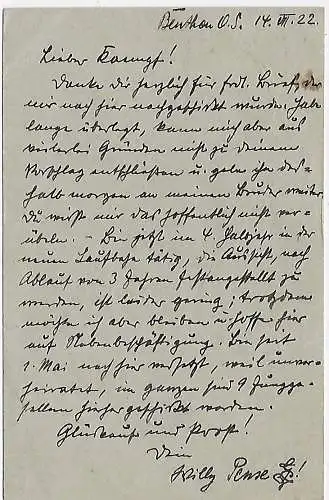 Beuthen O.S. 14. VII. 22.
Lieber Kaempf!
Danke Dir herzlich für frdl. Brief, der
mir nach hier nachgeschickt wurde. Habe
lange überlegt, kann mich aber aus
vielerlei Gründen nicht zu Deinem
Vorschlag entschließen u. gebe ihn des-
halb morgen an meinen Bruder weiter.
Du wirst mir das hoffentlich nicht ver-
übeln. - Bin jetzt im 4. Halbjahr in der
neuen Laufbahn tätig, die Aussicht, nach
Ablauf von 3 Jahren festangestellt zu
werden, ist leider gering; trotzdem
möchte ich aber bleiben u. hoffe hier
auf Nebenbeschäftigung. Bin seit
1. Mai nach hier versetzt, weil unver-
heiratet, im ganzen sind 9 Jungge-
sellen hierher geschickt worden.
Glückauf und Prost!
Dein
Willy